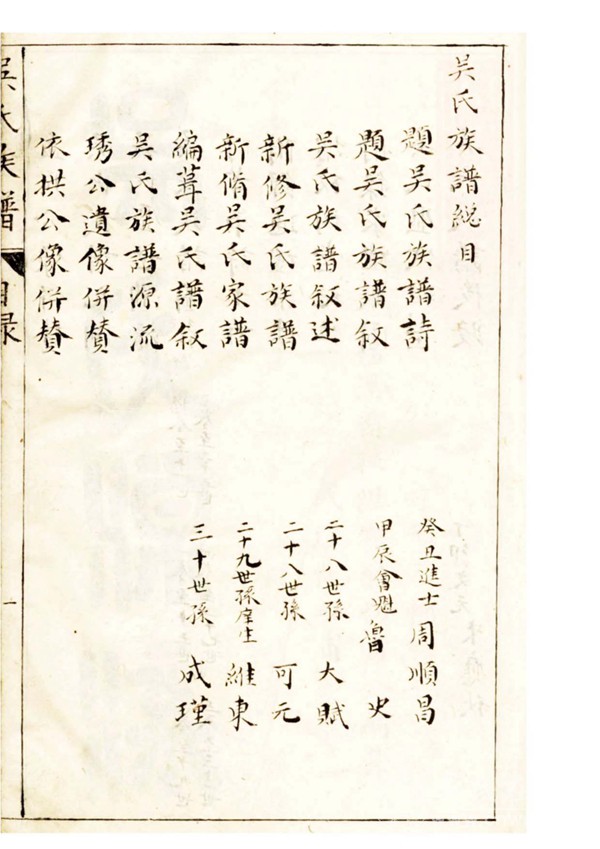 吴氏族譜總目
題吴氏族譜詩 癸丑進士 周順昌
題吴氏族譜叙 甲辰會魁 魯史
吴氏族譜叙述 二十八世孫 大賦
新修吴氏族譜 二十八世孫 可元
新脩吴氏家譜 二十九世孫庠生 維東
編葺吴氏譜叙 三十世孫 成瑾
吴氏族譜源流
琇公遺像併賛
依拱公像併賛
吴氏族譜 目录 一